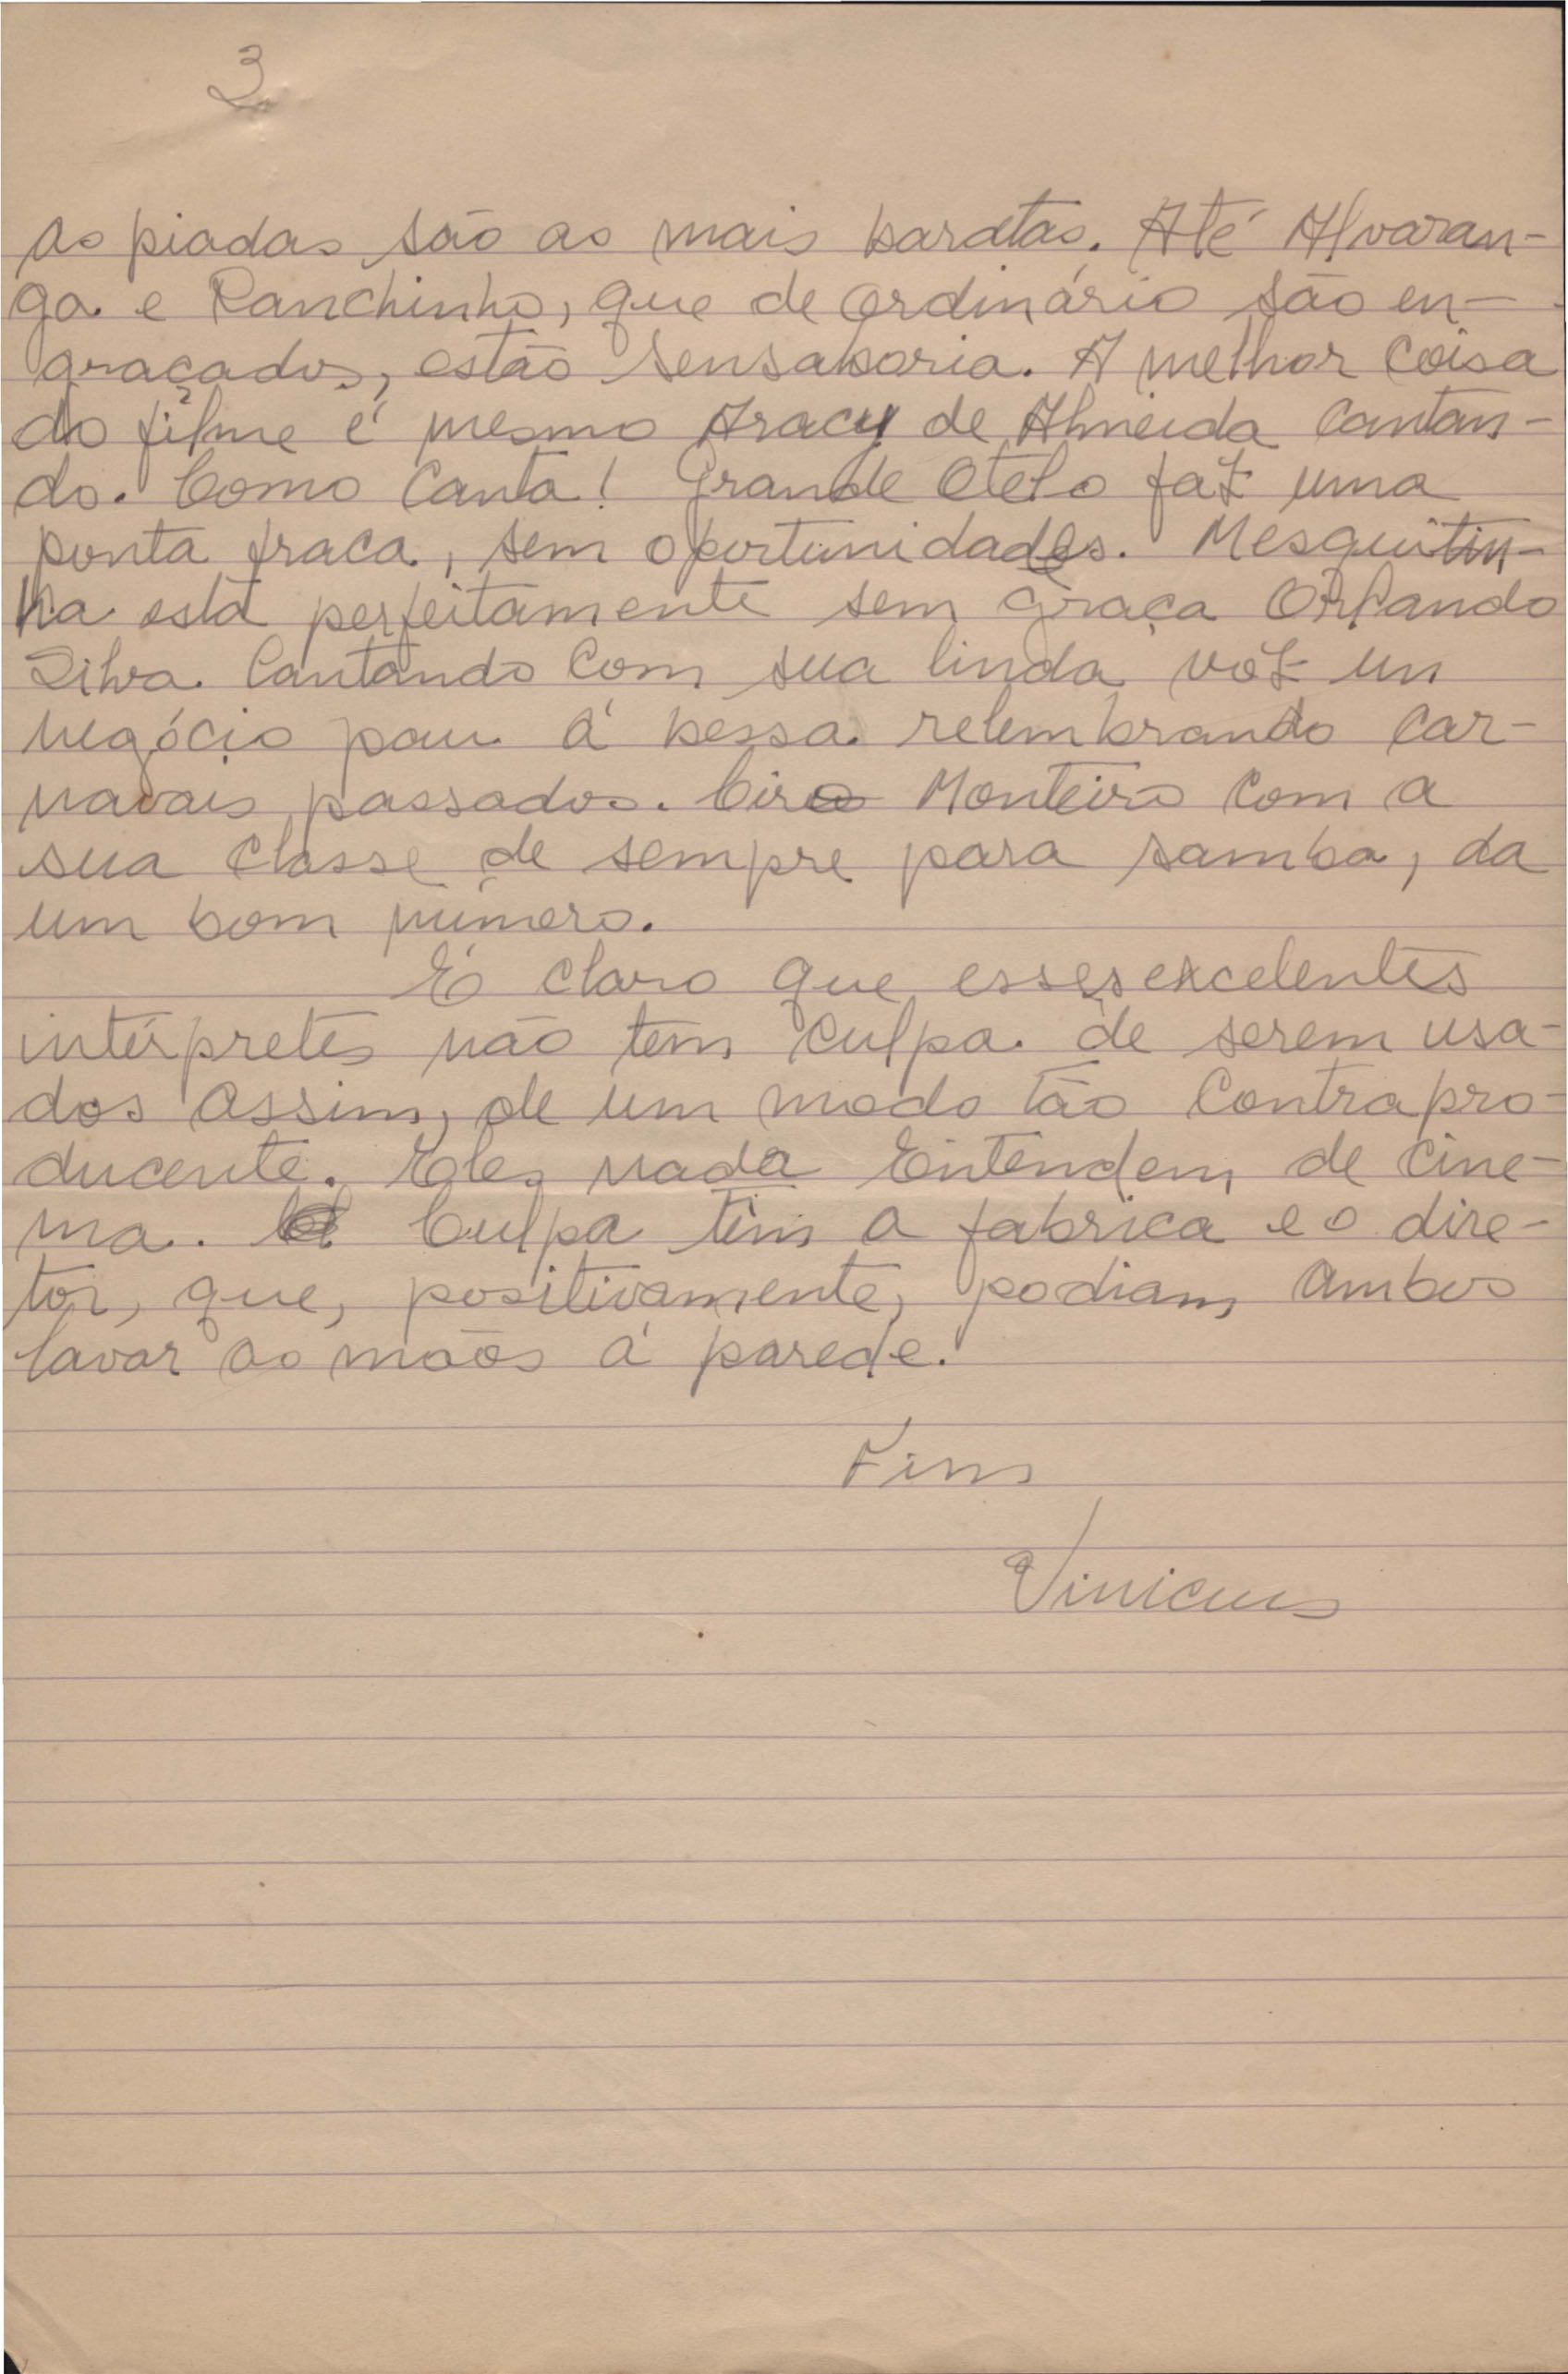 3
as piadas são as mais baratas. Até Alvaran-
ga e Ranchinho, que de ordinário são en-
graçados, estão sensaboria. A melhor coisa
do filme é mesmo Aracy de Almeida cantan-
do. Como canta! Grande Otelo faz uma
ponta fraca, sem oportunidades. Mesquitin-
ha está perfeitamente sem graça Orlando
Silva. Cantando com sua linda vóz un
negócio pau á bessa relembrando car-
navais passados. Ciro Monteiro com a
sua classe de sempre para samba, da
um bom número.
É claro que esses excelentes
intérpretes não tem culpa de serem usa-
dos assim, de um modo tão contrapro-
ducente. Eles nada entendem de cine-
ma. Culpa têm a fabrica e o dire-
tor, que, positivamente, podiam ambos
lavar as mãos á parede.
Fim
Vinicius